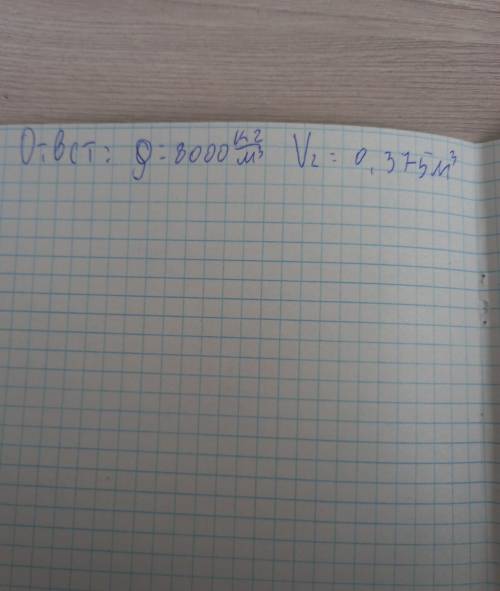 Ответ: ρ = 8000 кг/м³ V₂ = 0,375м³